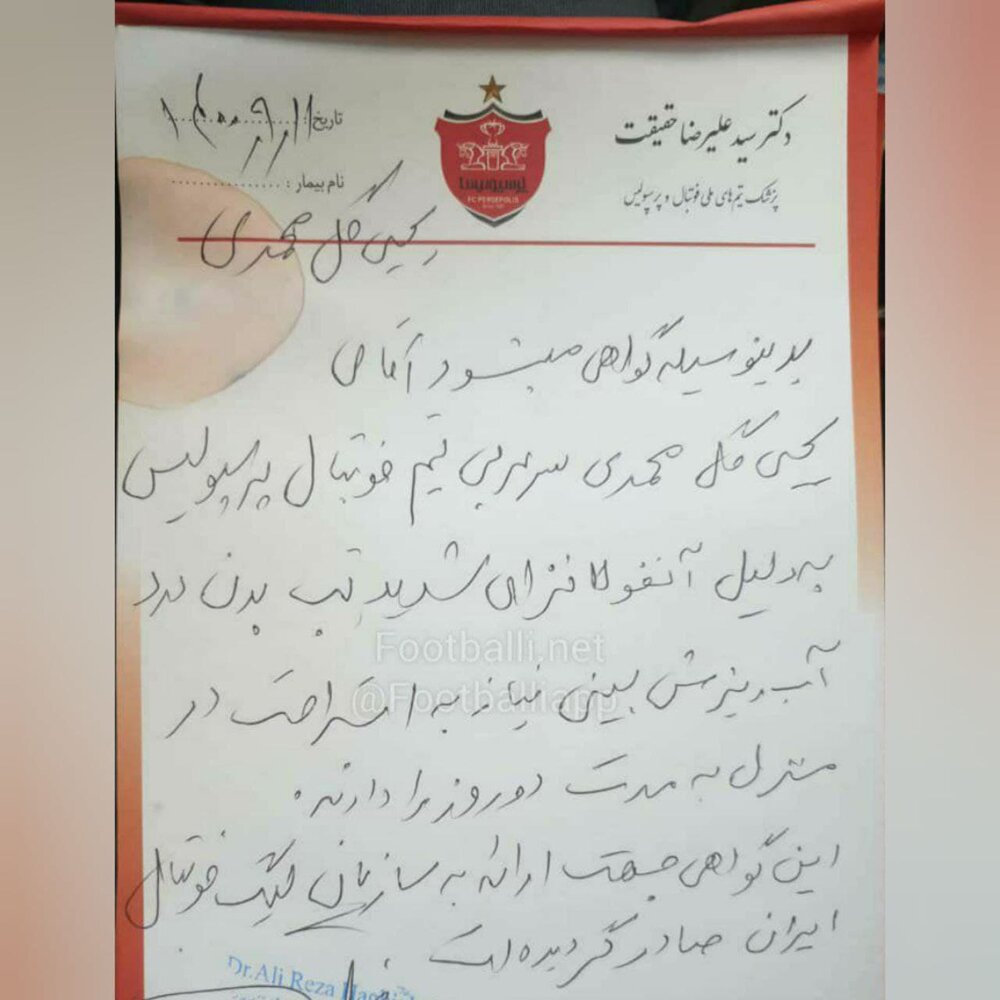 دکتر سید علیرضا حقیقت
پزشک تیم های ملی فوتبال و پرسپولیس
پرسپولیس
FC PERSEPOLIS
تاریخ: ۱۴۰۰٫۹٫۱۱
نام بیمار:
یحیی گل محمدی
بدینوسیله گواهی میشود آقای
یحیی گل محمدی سرمربی تیم فوتبال پرسپولیس
به دلیل آنفولانزای شدید تب بدن درد
آبریزش بینی نیاز به استراحت در
منزل به مدت دو روز را دارند.
این گواهی جهت ارائه به سازمان لیگ فوتبال
ایران صادر گردیده است
Footballi.net
@Footballiapp
Dr.Ali Reza